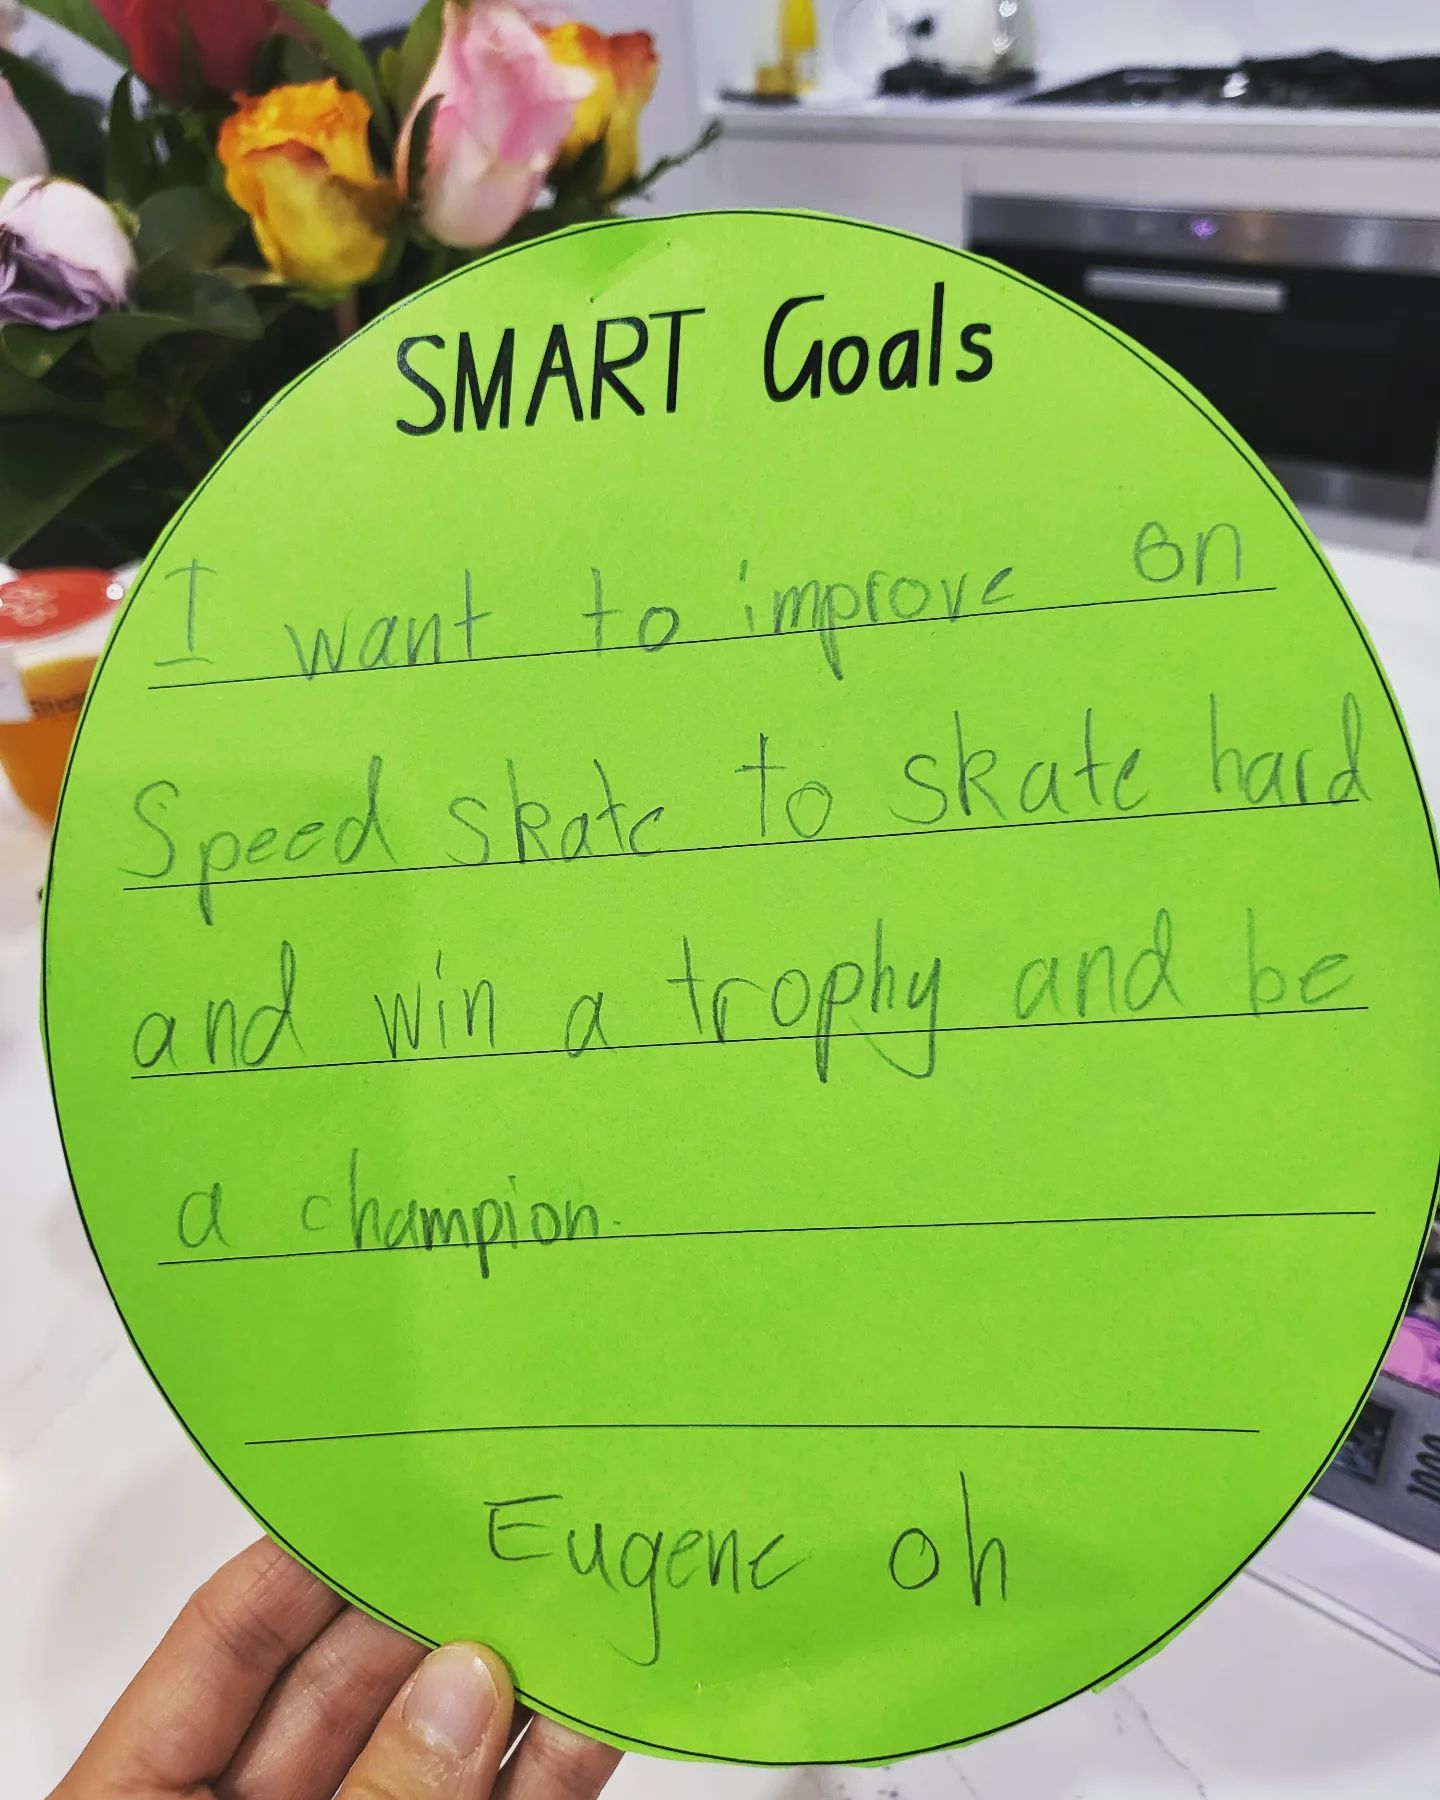 SMART Goals
I want to improve on
Speed skate to skate hard
and win a trophy and be
a champion.
Eugene oh
1000